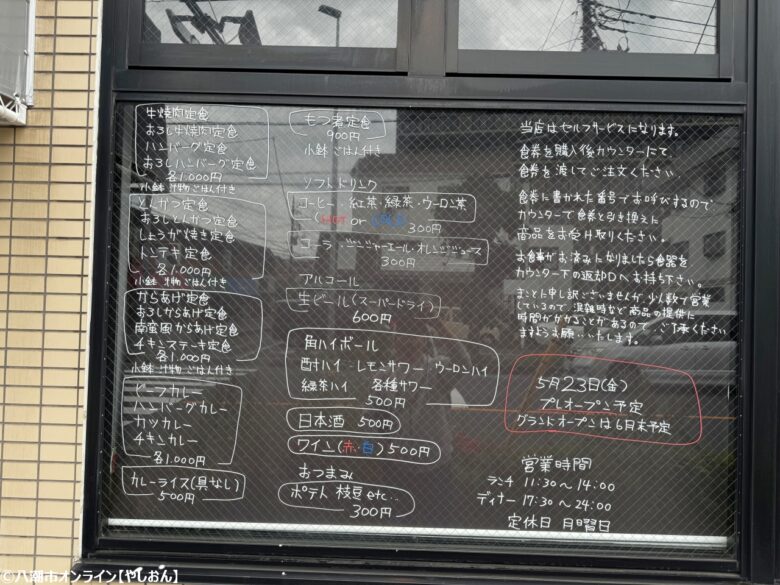 牛焼肉定食
おろし牛焼肉定食
ハンバーグ定食
おろしハンバーグ定食
各1.000円
小鉢 汁物 ごはん付き
とんかつ定食
おろしとんかつ定食
しょうが焼き定食
トンテキ定食
各1.000円
小鉢 汁物 ごはん付き
からあげ定食
おろしからあげ定食
南蛮風からあげ定食
チキンステーキ定食
各1.000円
小鉢 汁物 ごはん付き
ビーフカレー
ハンバーグカレー
カツカレー
チキンカレー
各1.000円
カレーライス(具なし)
500円
もつ煮定食
900円
小鉢 ごはん付き
ソフトドリンク
コーヒー・紅茶・緑茶・ウーロン茶
(HOT or COLD)
300円
コーラ・ジンジャーエール・オレンジジュース
300円
アルコール
生ビール(スーパードライ)
600円
角ハイボール
酎ハイ・レモンサワー ウーロンハイ
緑茶ハイ 各種サワー
500円
日本酒 500円
ワイン(赤・白)500円
おつまみ
ポテト 枝豆 etc...
300円
当店はセルフサービスになります。
食券を購入後カウンターにて
食券を渡してご注文ください
食券に書かれた番号でお呼びするので
カウンターで食券と引き換えに
商品をお受け取りください。
お食事がお済みになりましたら食器を
カウンター下の返却口へお持ち下さい。
まことに申し訳ございませんが、少人数で営業
しているので、混雑時など商品の提供に
時間がかかることがあるので、ご了承ください
ますようお願いいたします。
5月23日(金)
プレオープン予定
グランドオープンは6月末予定
営業時間
ランチ 11:30〜14:00
ディナー 17:30〜24:00
定休日 月曜日
©八潮市オンライン【やしおん】